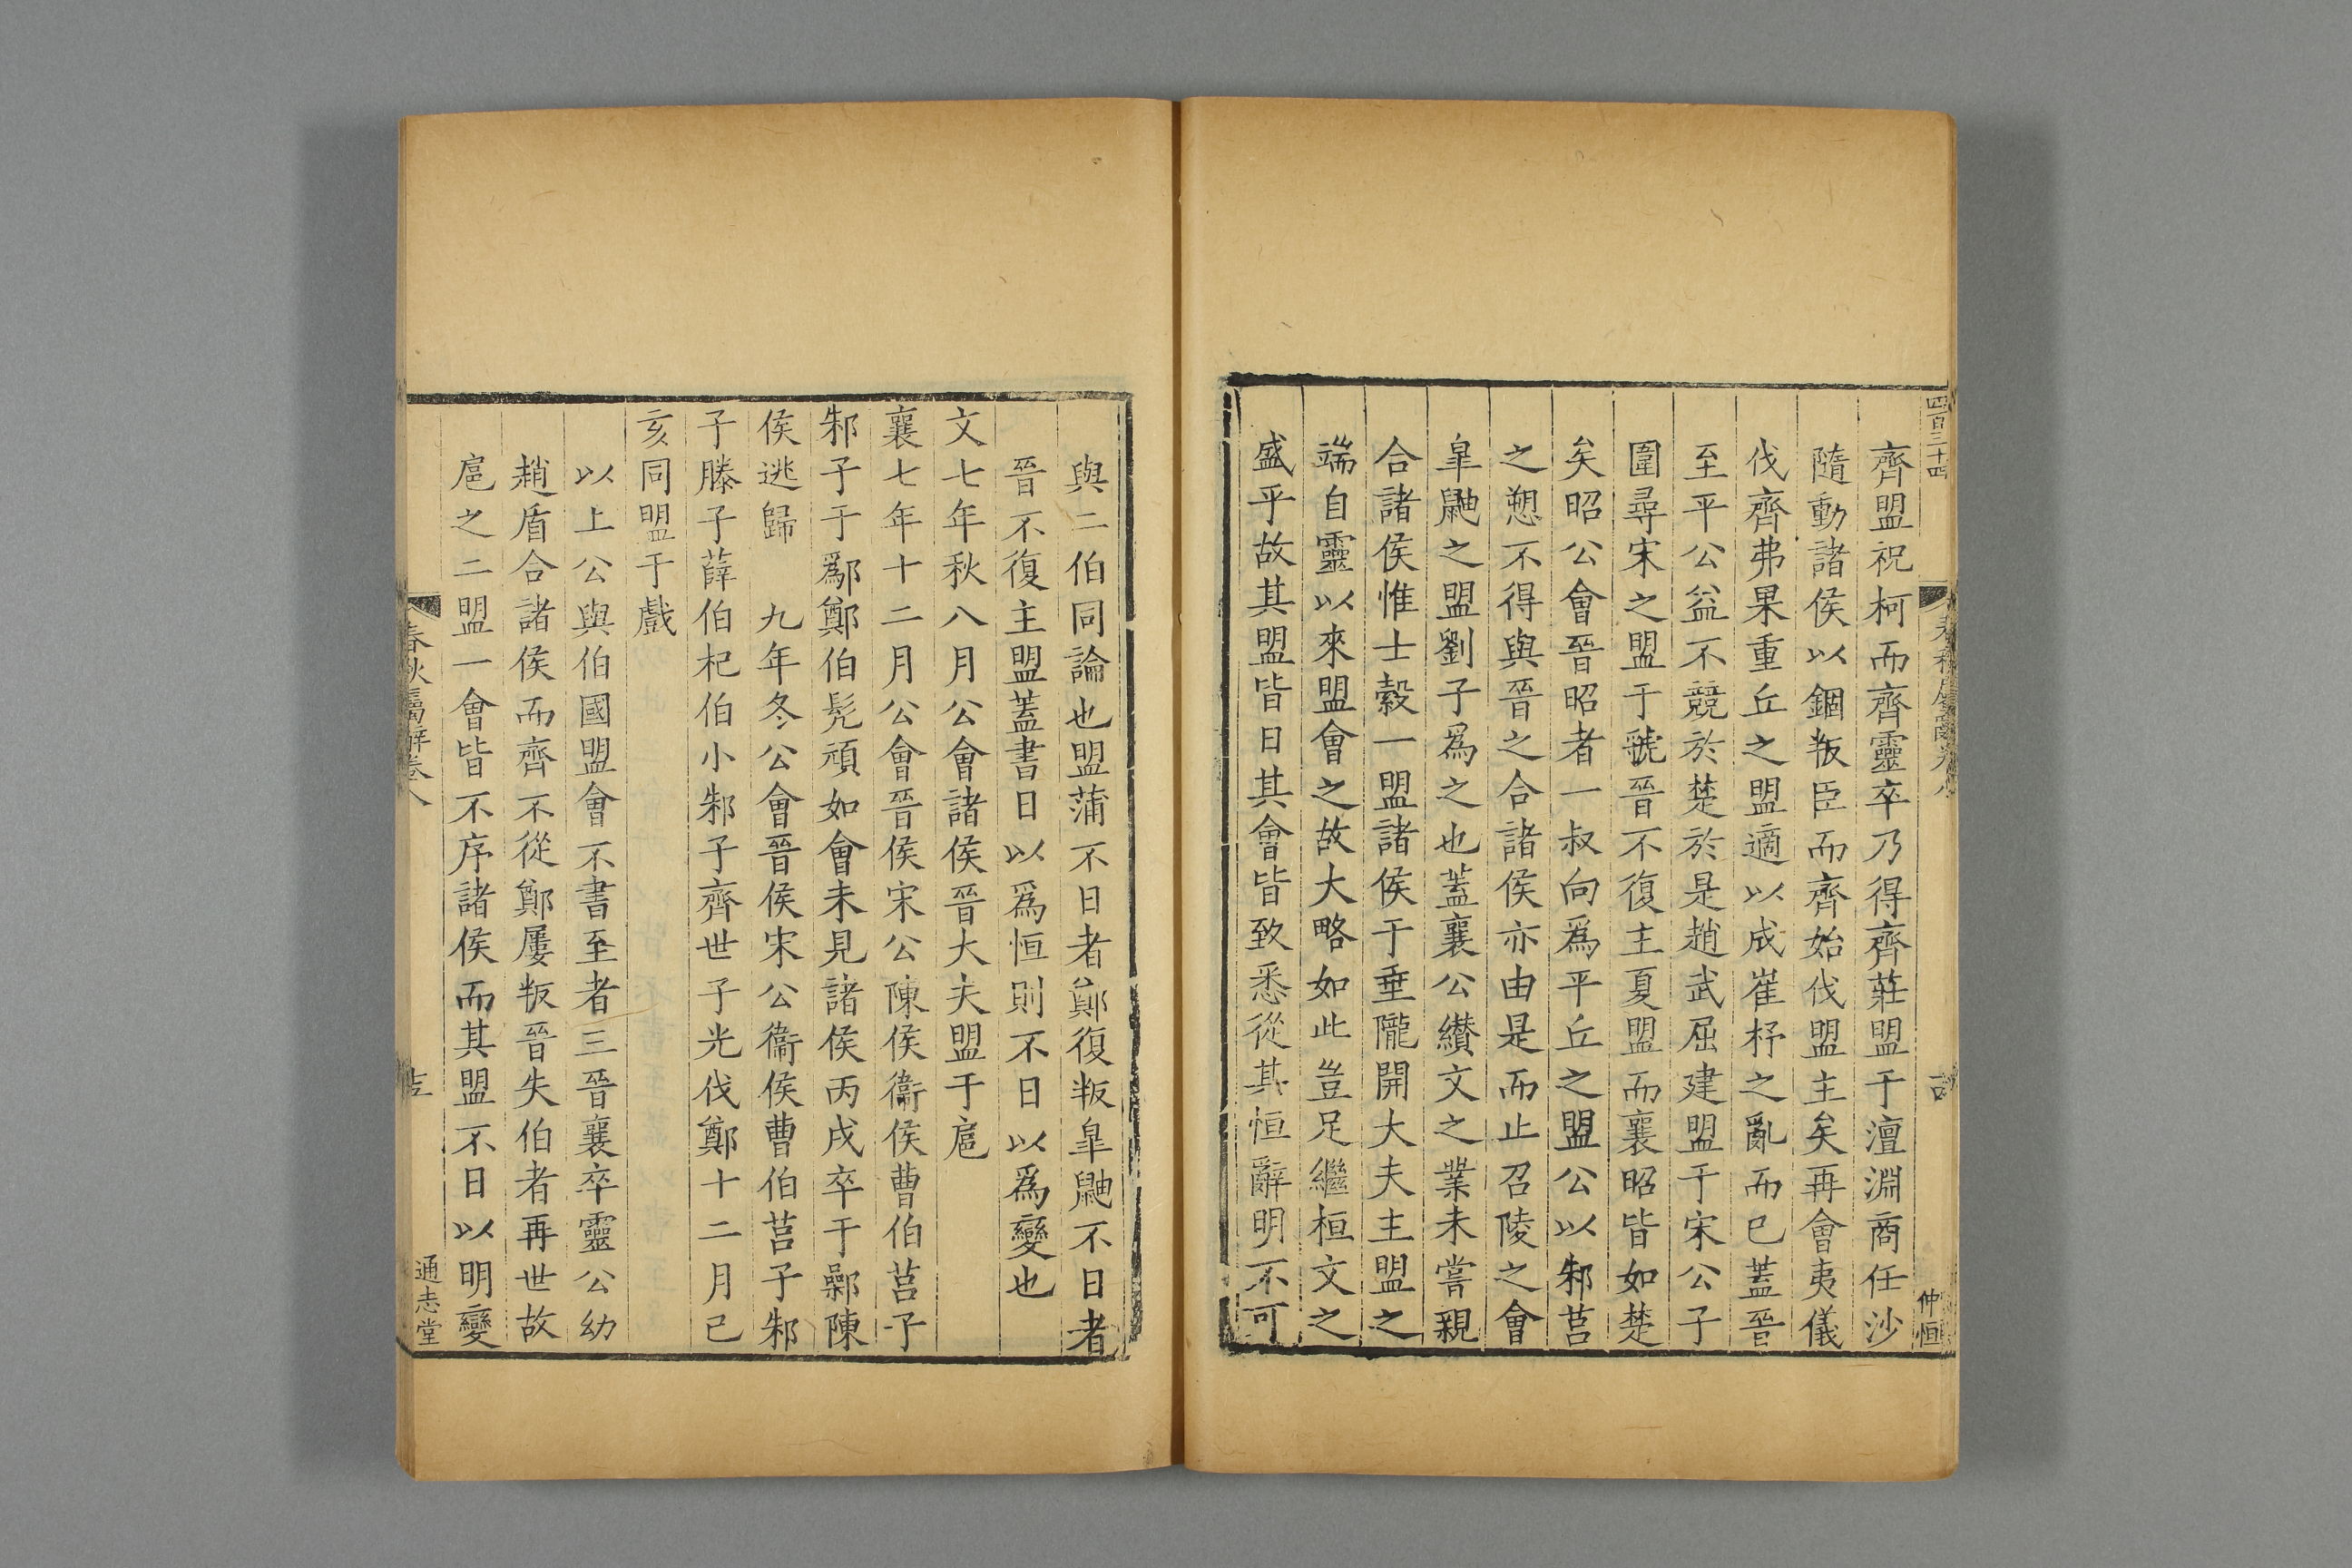 四百三十四
仲恒
齊盟祝柯而齊靈卒乃得齊莊盟于澶淵商任沙
隨動諸侯以錮叛臣而齊始伐盟主矣再會夷儀
伐齊弗果重丘之盟適以成崔杼之亂而已蓋晉
至平公益不競於楚於是趙武屈建盟于宋公子
圍尋宋之盟于虢晉不復主夏盟而襄昭皆如楚
矣昭公會晉昭者一叔向爲平丘之盟公以邾莒
之愬不得與晉之合諸侯亦由是而止召陵之會
皐鼬之盟劉子爲之也蓋襄公纉文之業未嘗親
合諸侯惟士縠一盟諸侯于垂隴開大夫主盟之
端自靈以來盟會之故大略如此豈足繼桓文之
盛乎故其盟皆日其會皆致悉從其恒辭明不可
與二伯同論也盟蒲不日者鄭復叛皐鼬不日者
晉不復主盟蓋書日以爲恒則不日以爲變也
文七年秋八月公會諸侯晉大夫盟于扈
襄七年十二月公會晉侯宋公陳侯衞侯曹伯莒子
邾子于鄬鄭伯髠頑如會未見諸侯丙戌卒于鄵陳
侯逃歸　九年冬公會晉侯宋公衞侯曹伯莒子邾
子滕子薛伯杞伯小邾子齊世子光伐鄭十二月己
亥同盟于戲
以上公與伯國盟會不書至者三晉襄卒靈公幼
趙盾合諸侯而齊不從鄭屢叛晉失伯者再世故
扈之二盟一會皆不序諸侯而其盟不日以明變
春秋屬辭卷八
通志堂